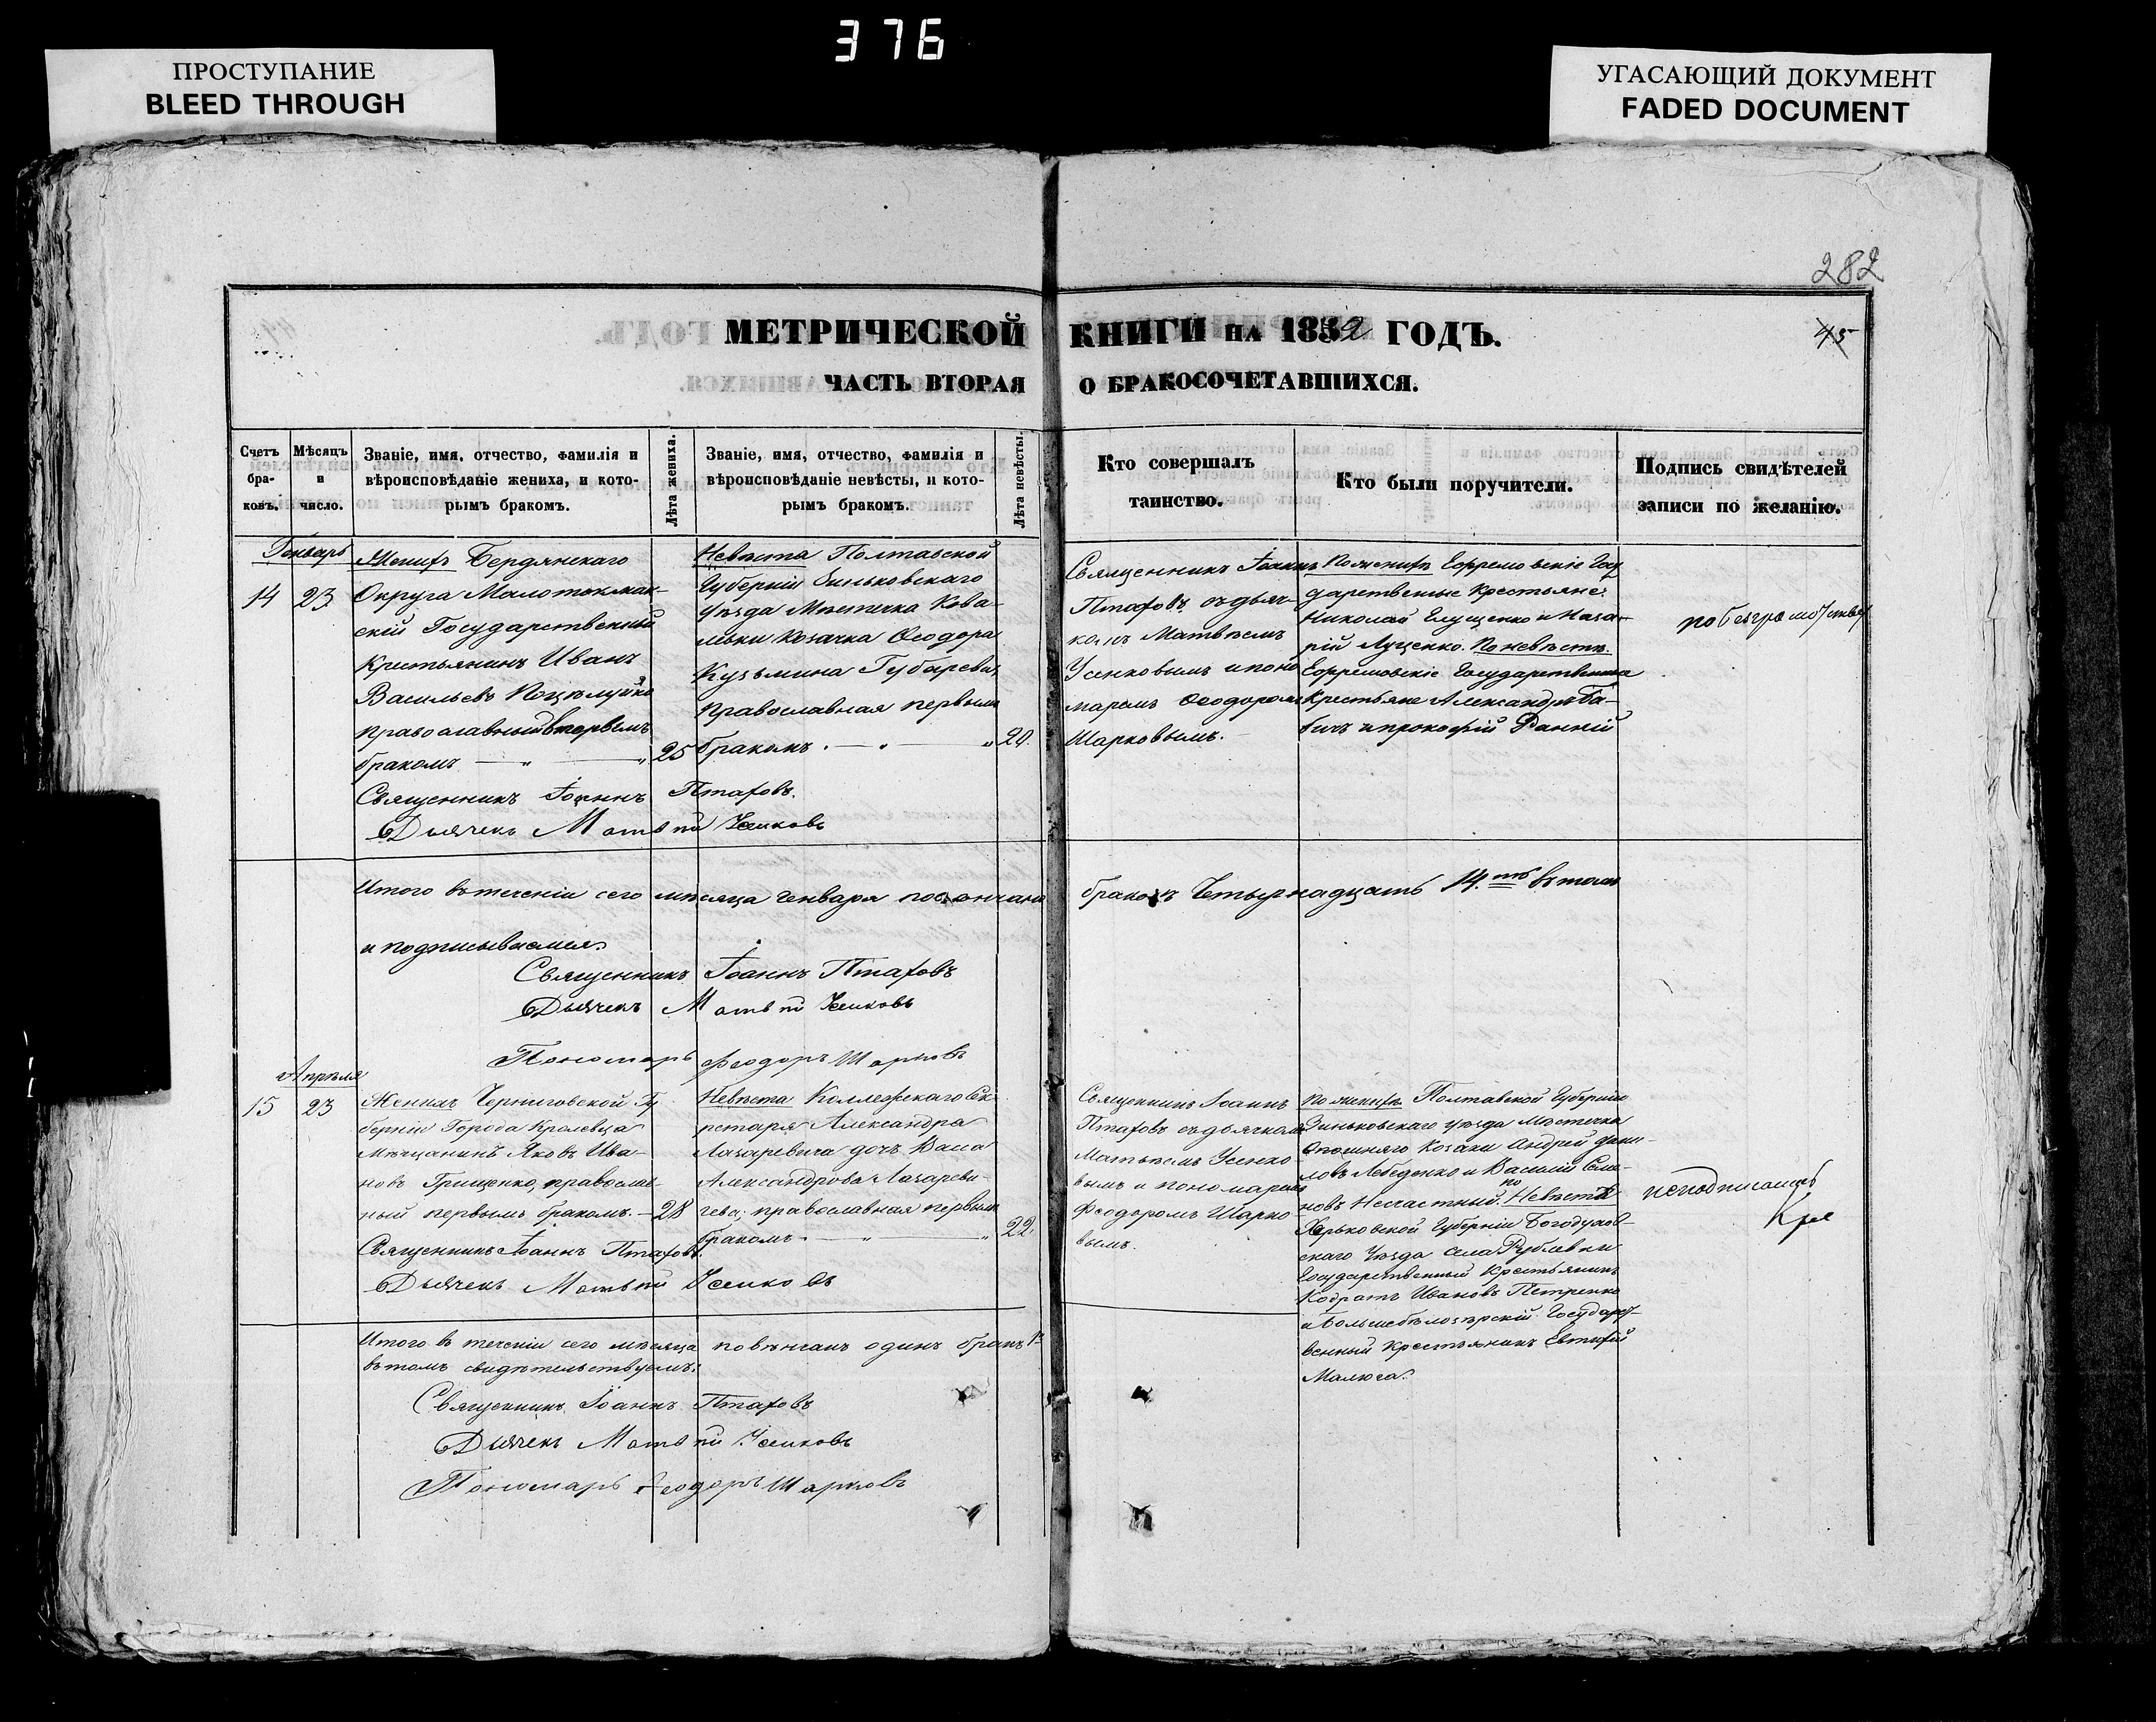 376
ПРОСТУПАНИЕ
BLEED THROUGH
УГАСАЮЩИЙ ДОКУМЕНТ
FADED DOCUMENT
282
МЕТРИЧЕСКОЙ КНИГИ НА 1852 ГОДЪ.
45
ЧАСТЬ ВТОРАЯ О БРАКОСОЧЕТАВШИХСЯ.
Счетъ
бра-
ковъ.
Мѣсяцъ
и
число.
Званіе, имя, отчество, фамилія и
вѣроисповѣданіе жениха, и кото-
рымъ бракомъ.
Лѣта жениха.
Званіе, имя, отчество, фамилія и
вѣроисповѣданіе невѣсты, и кото-
рымъ бракомъ.
Лѣта невѣсты.
Кто совершалъ
таинство.
Кто были поручители.
Подпись свидѣтелей
записи по желанію.
Генварь
14
23
Женихъ Бердянскаго
Округа Малотокмак-
скій Государственный
Крестьянинъ Иванъ
Васильевъ Поцѣлуйко
православный первымъ
бракомъ
25
Невѣста Полтавской
Губерніи Зиньковскаго
Уѣзда Мѣстечка Кова-
левки Козачка Ѳеодора
Кузьмина Губарева,
православная первымъ
бракомъ.
20.
Священникъ Іоаннъ
Птаховъ съ дьяч-
комъ Матвѣемъ
Усенковымъ и поно
маремъ Ѳеодоромъ
Шарковымъ.
По женихѣ Ефремовскіе Госу
дарственные Крестьяне
Николай Елущенко и Наза-
рій Луценко. По невѣстѣ
Ефремовскіе Государственные
Крестьяне Александръ Ба-
бичъ и прокофій Ранній
по безграмотству
Священникъ Іоаннъ Птаховъ.
Дьячекъ Матвѣй Усенковъ
Итого въ теченіи сего мѣсяца генваря повѣнчано браковъ Четырнадцать 14.ть въ томъ
и подписываемся.
Священникъ Іоаннъ Птаховъ
Дьячекъ Матвѣй Усенковъ
Пономарь Феодоръ Шарковъ
Апрѣля
15
23
Женихъ Черниговской Гу
берніи Города Кролевца
мѣщанинъ Яковъ Ива-
новъ Грищенко, православ-
ный первымъ бракомъ.
28
Невѣста Коллежскаго Сек
ретаря Александра
Лазаревича дочь Васса
Александрова Лазареви-
чева, православная первымъ
бракомъ.
22.
Священникъ Іоаннъ
Птаховъ съ дьячкомъ
Матвѣемъ Усенко
вымъ и пономаремъ
Феодоромъ Шарко
вымъ.
По женихѣ Полтавской Губерніи
Зиньковскаго уѣзда Мѣстечка
Опошняго Козаки Андрей Дани-
ловъ Лебеденко и Василій Семе-
новъ Несчастный. по Невѣстѣ
Харьковской Губерніи Богодухов-
скаго Уѣзда Села Рублевки
Государственный Крестьянинъ
Кодратъ Ивановъ Петренко
и Большебѣлозѣрскій Государст-
венный Крестьянинъ Евтихій
Малюга.
Священникъ Іоаннъ Птаховъ.
Дьячекъ Матвѣй Усенковъ
Итого въ теченіи сего мѣсяца повѣнчанъ одинъ бракъ 1-нъ
въ томъ свидѣтельствуемъ:
Священникъ Іоаннъ Птаховъ
Дьячекъ Матвѣй Усенковъ
Пономарь Феодоръ Шарковъ